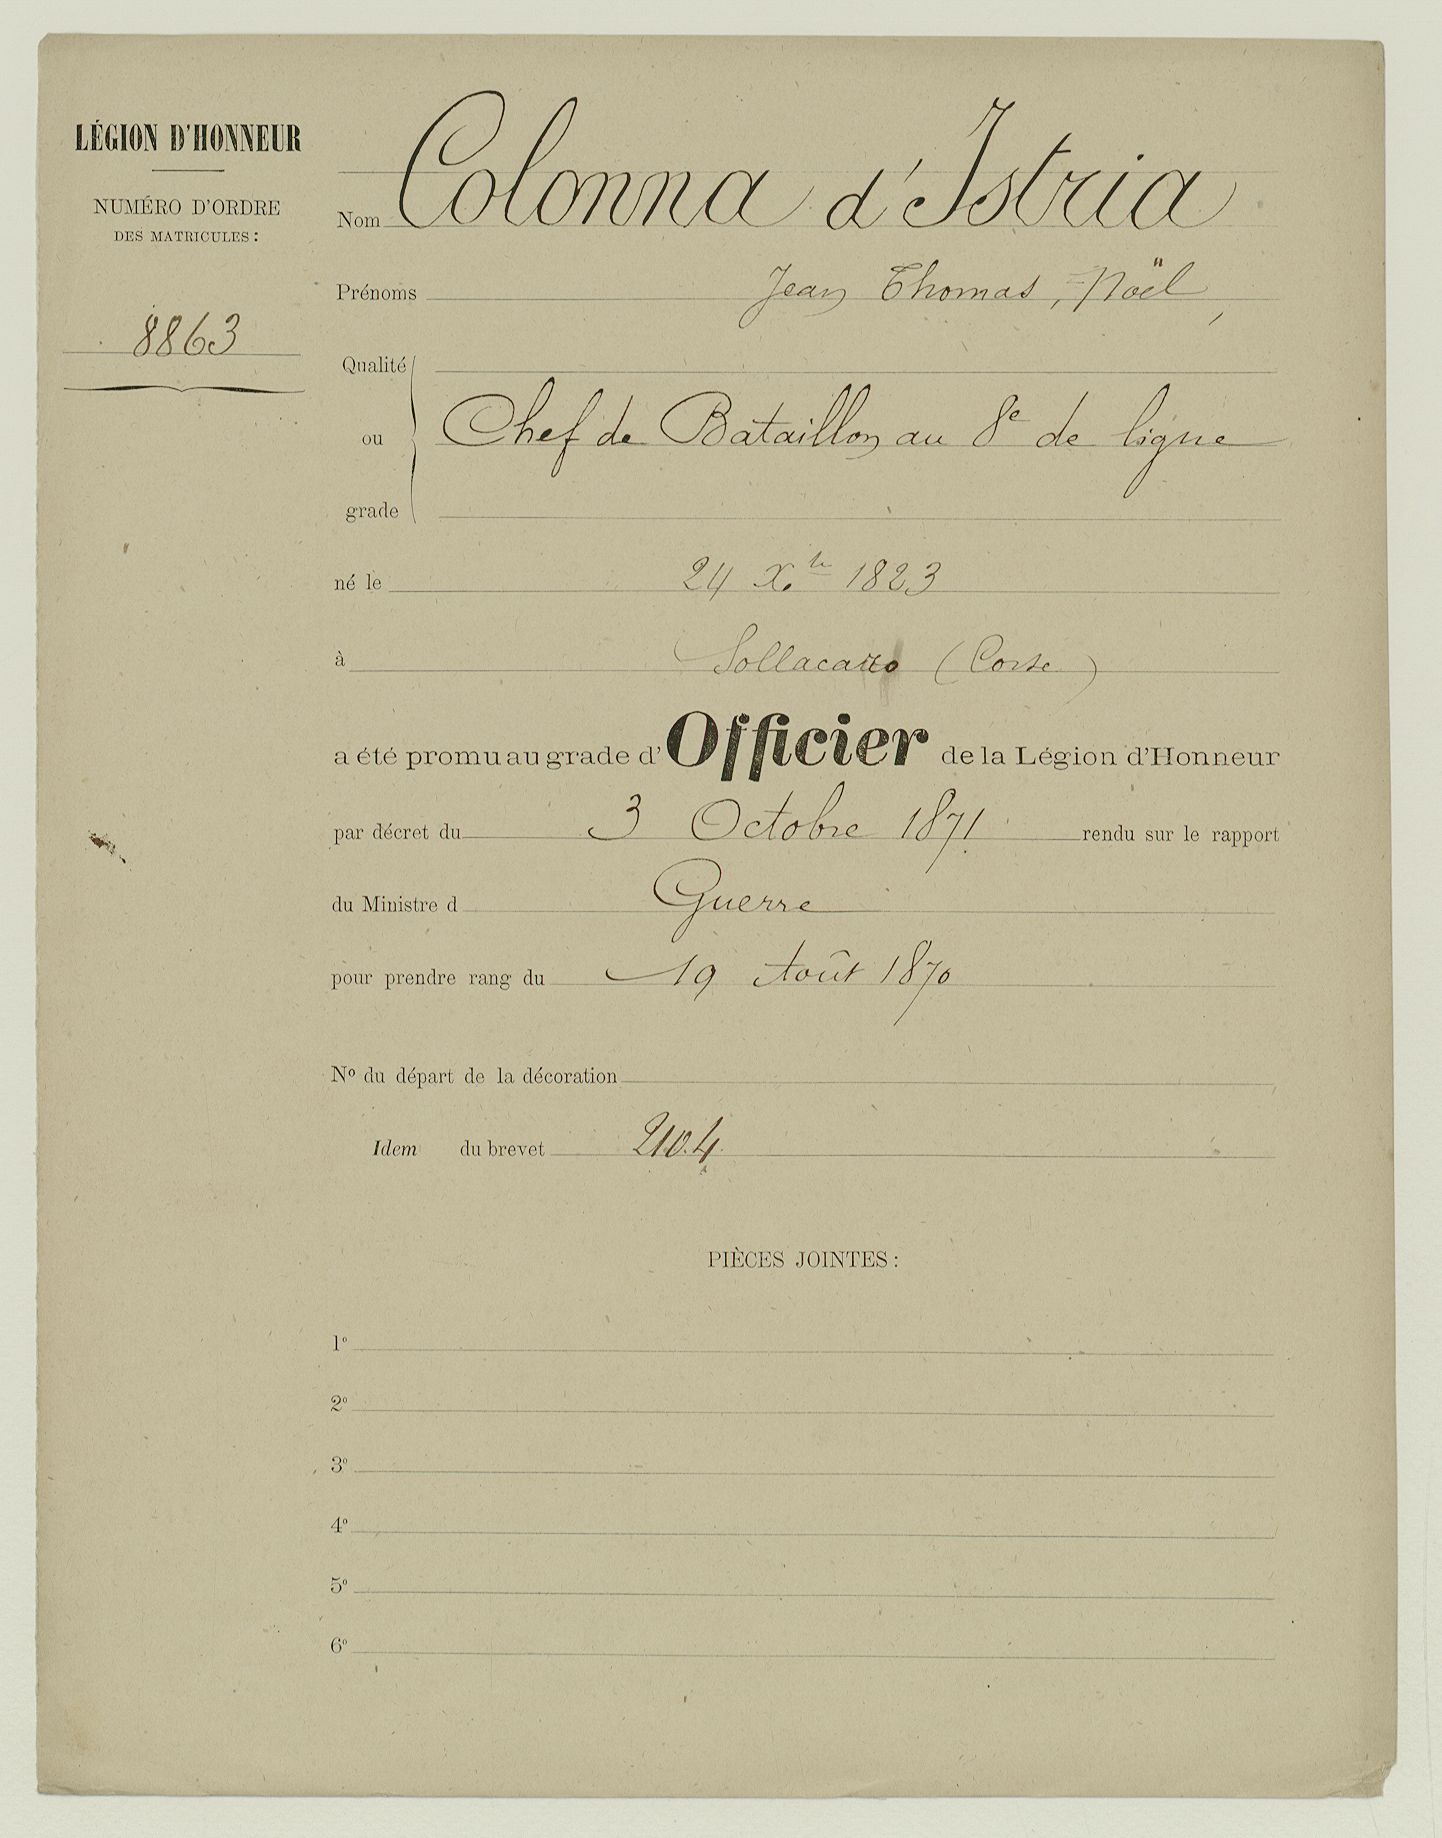 LÉGION D'HONNEUR
NUMÉRO D'ORDRE
DES MATRICULES :
8863
Nom Colonna d'Istria
Prénoms Jean Thomas, Noël,
Qualité
ou Chef de Bataillon au 8e de ligne
grade
né le 24 Xbre 1823
à Sollacaro (Corse)
a été promu au grade d'Officier de la Légion d'Honneur
par décret du 3 Octobre 1871 rendu sur le rapport
du Ministre d Guerre
pour prendre rang du 19 Août 1870
No du départ de la décoration
Idem du brevet 2104
PIÈCES JOINTES :
1o
2o
3o
4o
5o
6o